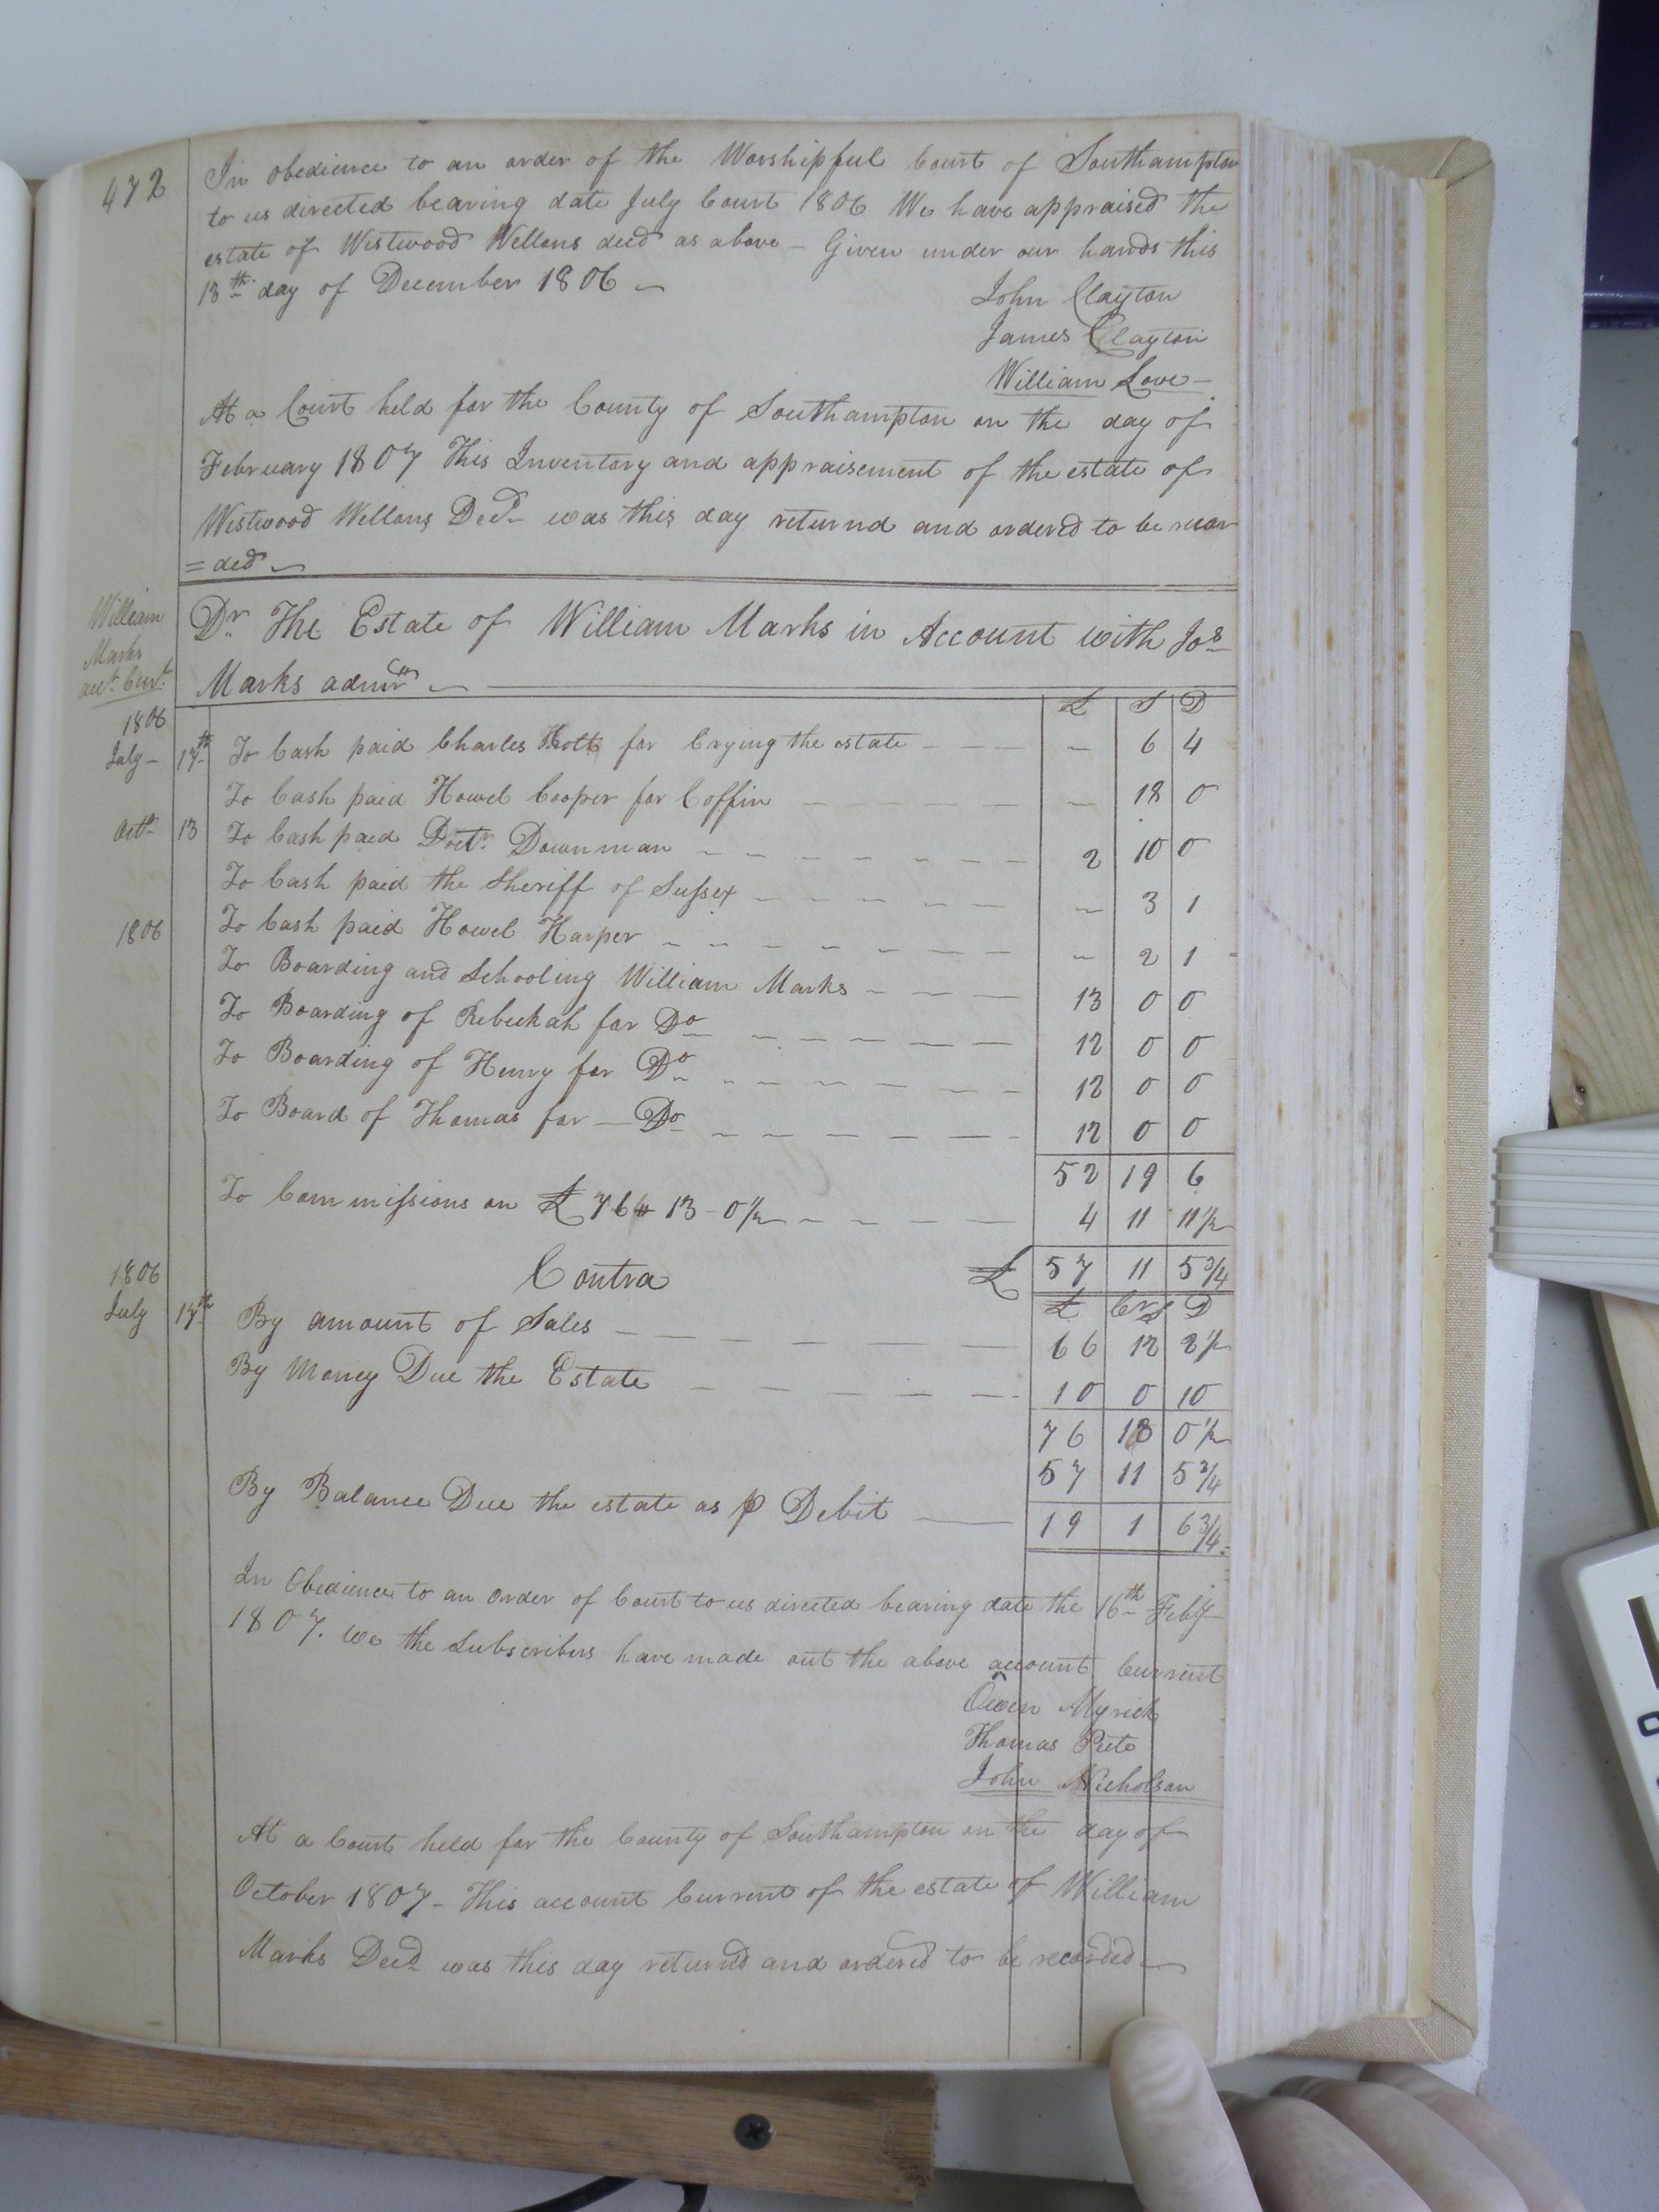 472
In obedience to an order of the Worshipful Court of Southampton
to us directed bearing date July Court 1806 We have appraised the
estate of Westwood Wellons decd as above – Given under our hands this
13th day of December 1806 –
John Clayton
James Clayton
William Love –
At a Court held for the County of Southampton on the day of
February 1807 This Inventory and appraisement of the estate of
Westwood Wellons Decd was this day returnd and orderd to be recor
=ded –
William
Marks
acct. Curt.
Dr The Estate of William Marks in Account with Jos
Marks admr –
£ S D
1806
July – 17th To Cash paid Charles for Crying the estate – – 6 4
To Cash paid Howel Cooper for Coffin – – 18 0
Octr 13 To Cash paid Doctr. Downman – 2 10 0
To Cash paid the Sheriff of Sussex – – 3 1
1806 To Cash paid Howel Harper – – 2 1
To Boarding and Schooling William Marks – 13 0 0
To Boarding of Rebeckah for Do – 12 0 0
To Boarding of Henry for Do – 12 0 0
To Board of Thomas for – Do – 12 0 0
52 19 6
To Commissions on £ 76 13 – 0 1/2 – 4 11 11 1/2
£ 57 11 5 3/4
Contra
£ Cr S D
1806
July 17th By amount of Sales – 66 12 2 1/2
By Money Due the Estate – 10 0 10
76 13 0 1/2
57 11 5 3/4
By Balance Due the estate as p Debit — 19 1 6 3/4
In Obedience to an Order of Court to us directed bearing date the 16th Feby
1807. We the Subscribers have made out the above account Current
Owen Myrick
Thomas Peete
John Nicholson
At a Court held for the County of Southampton on the day of
October 1807 – This account Current of the estate of William
Marks Decd was this day returnd and orderd to be recorded –